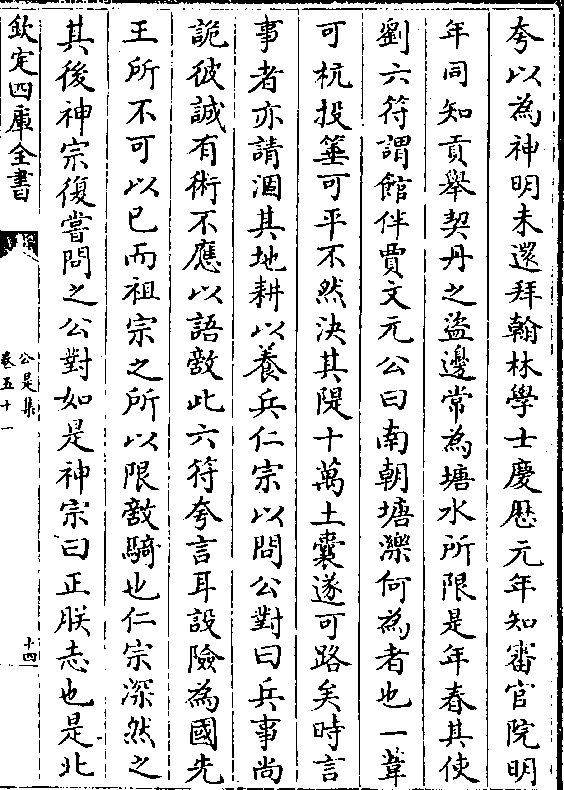 夸以為神明未還拜翰林學士慶厯元年知審官院明
年同知貢舉契丹之盜邊常為塘水所限是年春其使
劉六符謂館伴賈文元公曰南朝塘濼何為者也一葦
可杭投箠可平不然決其隄十萬土囊遂可路矣時言
事者亦請涸其地耕以養兵仁宗以問公對曰兵事尚
詭彼誠有術不應以語敵此六符夸言耳設險為國先
王所不可以已而祖宗之所以限敵騎也仁宗深然之
其後神宗復嘗問之公對如是神宗曰正朕志也是北
欽定四庫全書
公是集
卷五十一
十四